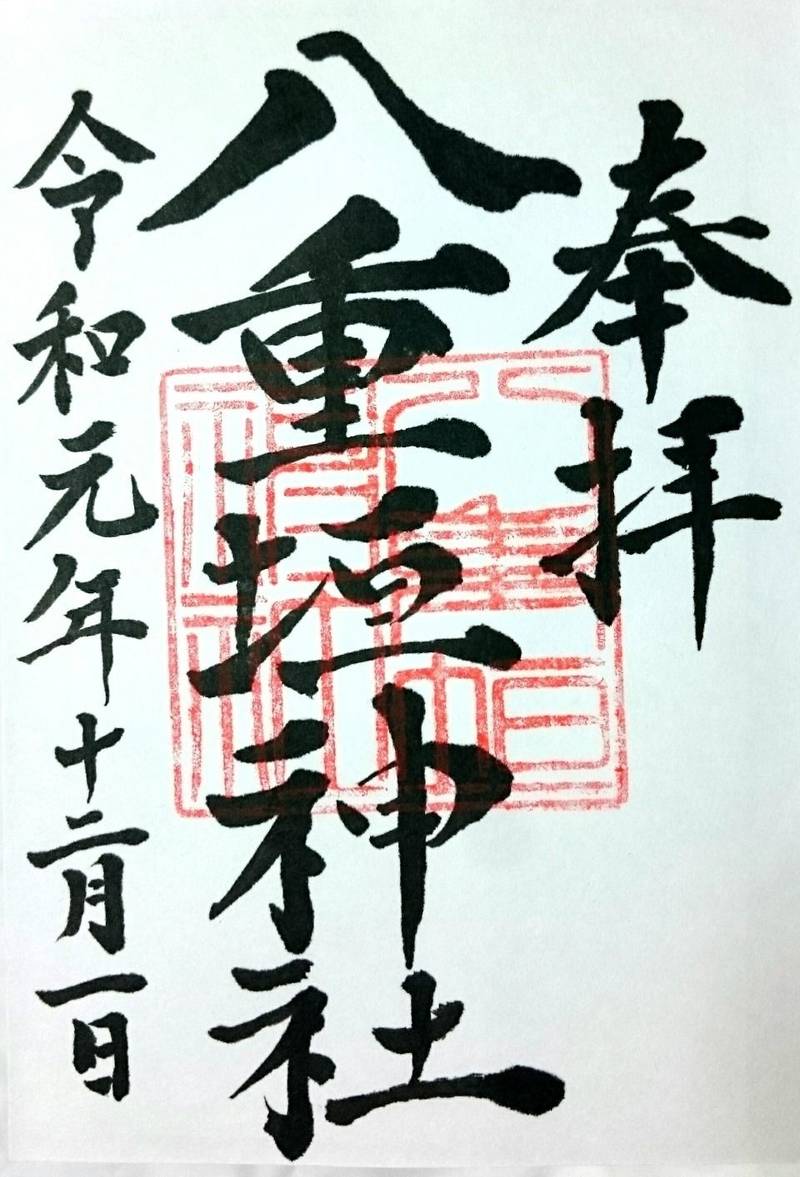 奉拝
八重垣神社
令和元年十二月一日